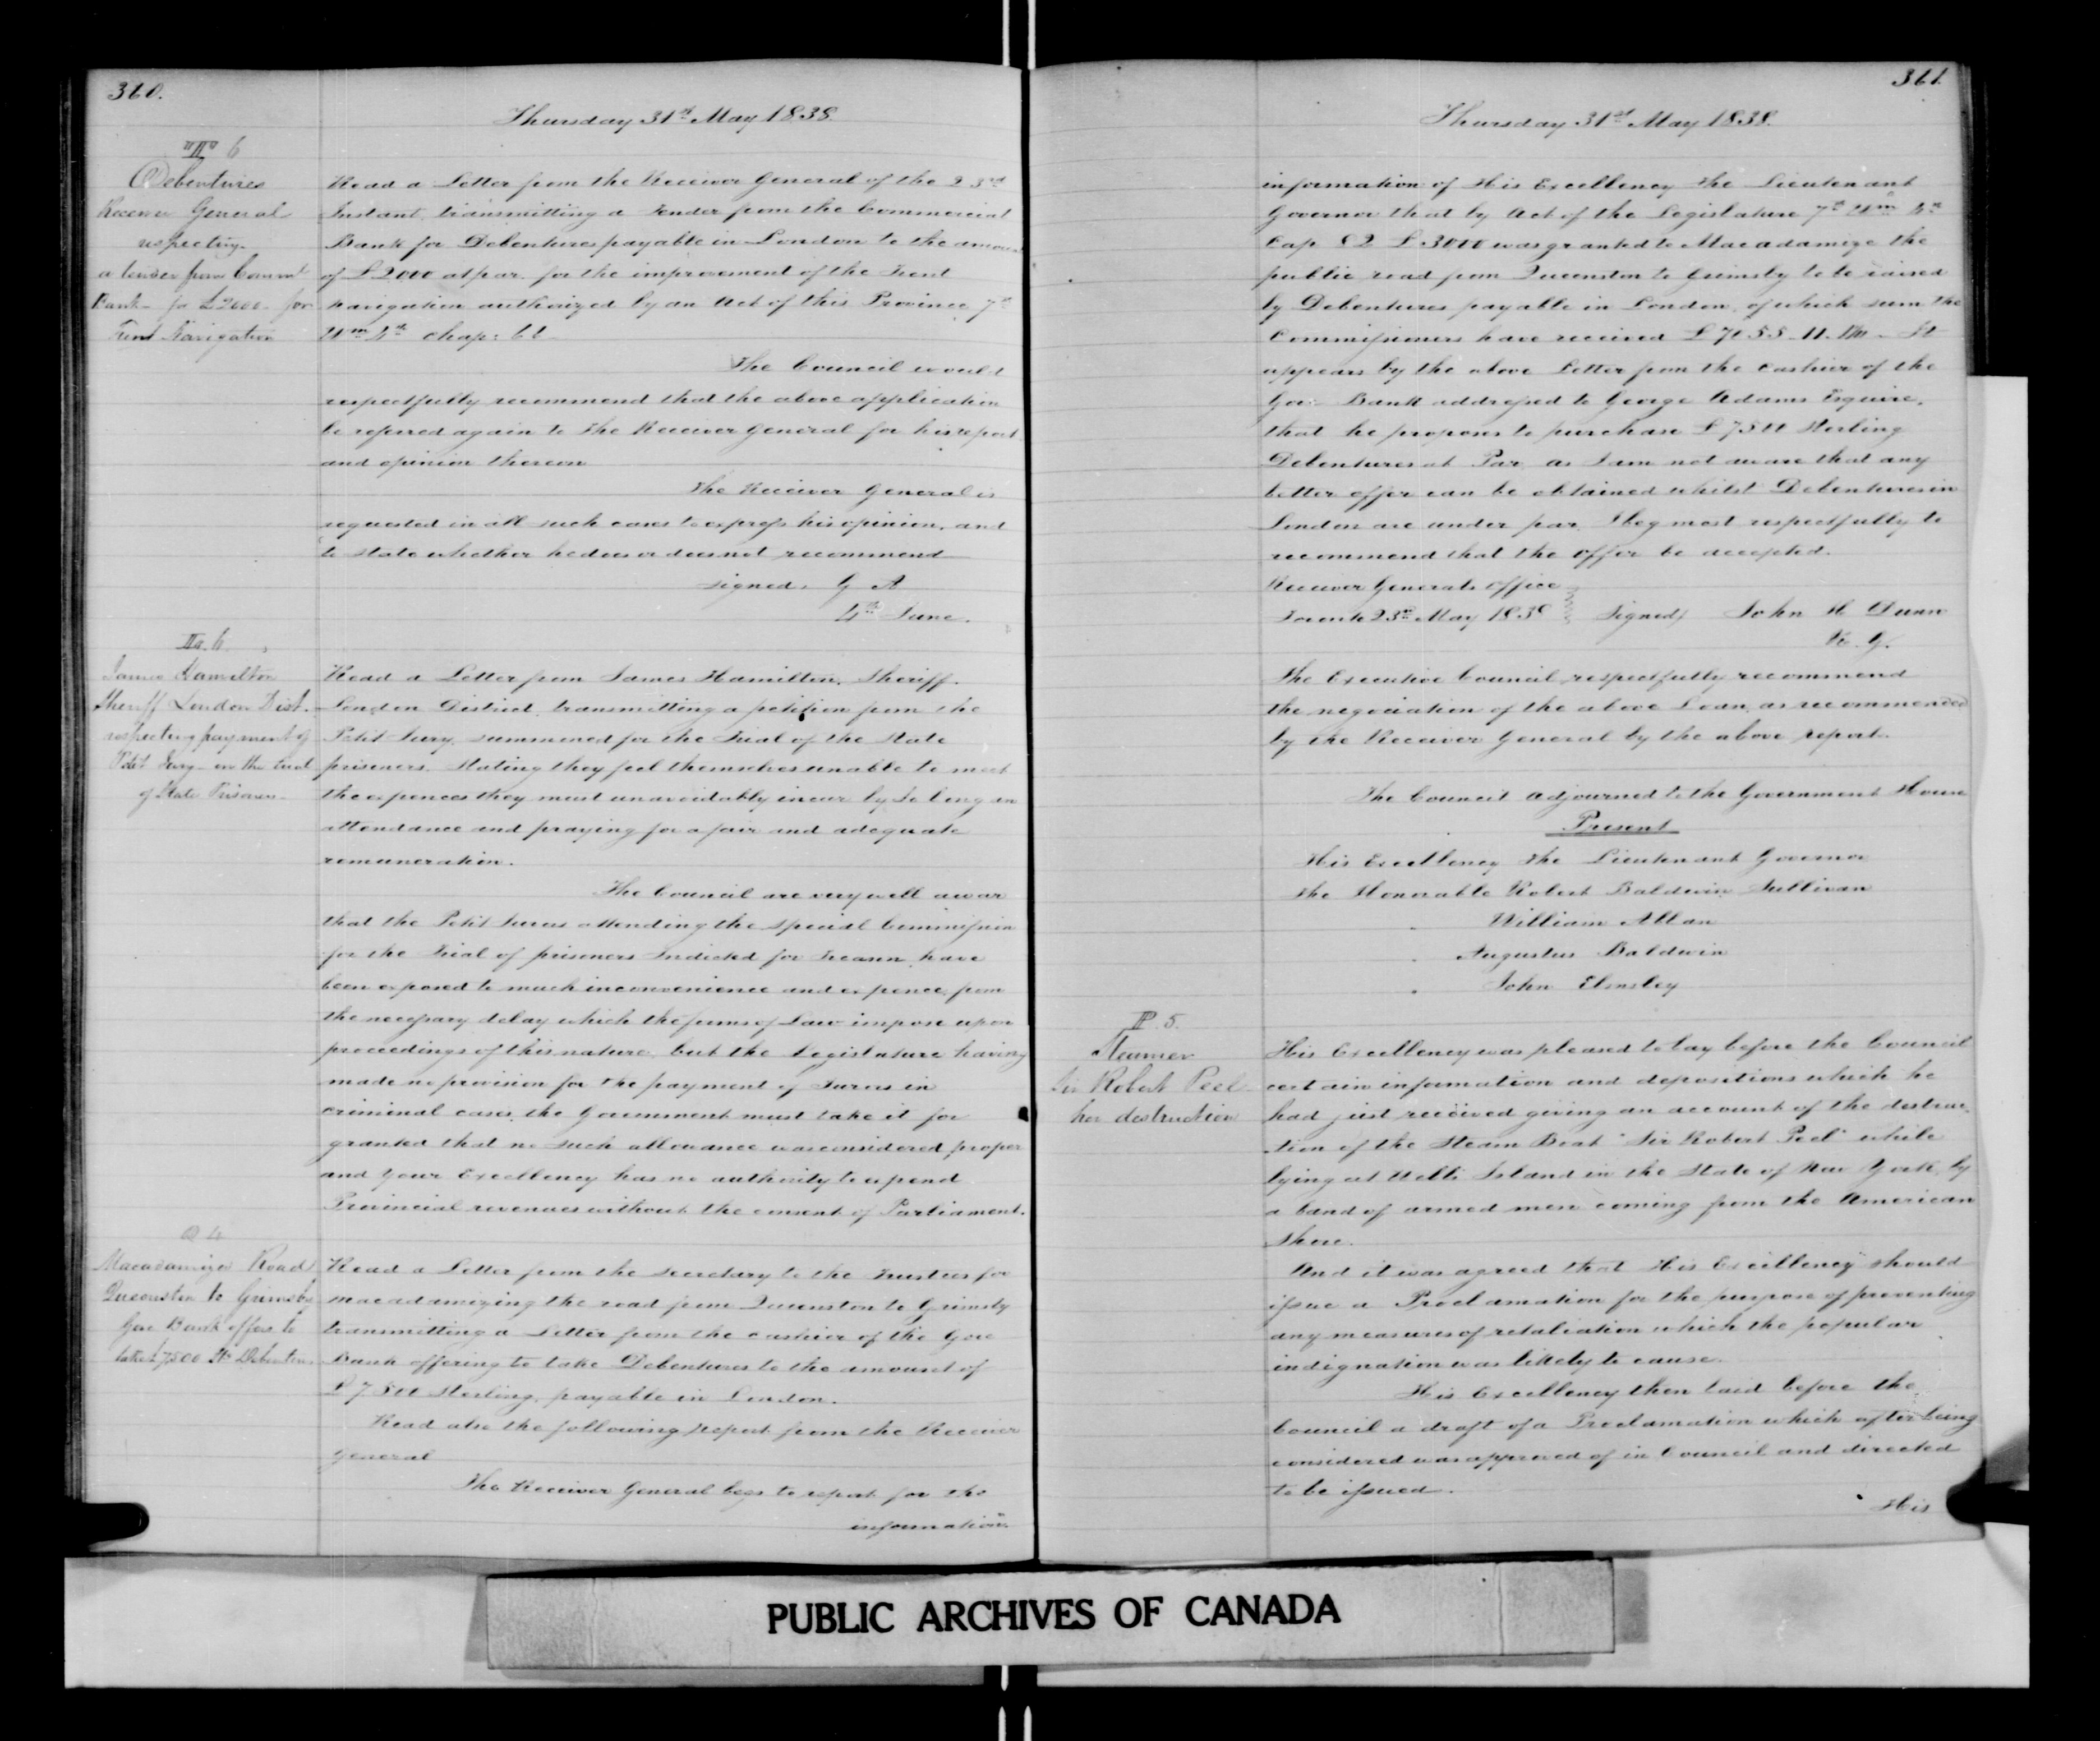 360.
Thursday 31st May 1838.
Debentures
Receiver General
respecting
a tender from Comml
Bank for £2000 for
Trent Navigation
Read a Letter from the Receiver General of the 23rd
Instant, transmitting a Tender from the Commercial
Bank for Debentures payable in London to the amount
of £2000 at par for the improvement of the Trent
navigation authorized by an Act of this Province, 7th
Wm 4th Chap:
The Council would
respectfully recommend that the above application
be referred again to the Receiver General for his report
and opinion thereon
The Receiver General is
requested in all such cases to express his opinion, and
to state whether he does or does not recommend
signed, G A
4th June.
James Hamilton
Sheriff London Dist.
respecting payment of
Petit Jury on the trial
of State Prisoners
Read a Letter from James Hamilton, Sheriff
London District transmitting a petition from the
Petit Jury summoned for the Trial of the State
prisoners. Stating they feel themselves unable to meet
the expences they must unavoidably incur by so long an
attendance and praying for a fair and adequate
remuneration.
The Council are very well awar
that the Petit Jurors attending the Special Commission
for the Trial of prisoners Indicted for Treason have
been exposed to much inconvenience and expence, from
the necessary delay which the forms of Law impose upon
proceedings of this nature, but the Legislature having
made no provision for the payment of Jurors in
criminal cases the Government must take it for
granted that no such allowance was considered proper
and Your Excellency has no authority to expend
Provincial revenues without the consent of Parliament.
Q 4
Macadamized Road
Queenston to Grimsby
Gore Bank offers to
take £7500 Stg Debentures
Read a Letter from the Secretary to the Trustees for
macadamizing the road from Queenston to Grimsby
transmitting a Letter from the cashier of the Gore
Bank offering to take Debentures to the amount of
£7500 Sterling, payable in London.
Read also the following report from the Receiver
General
The Receiver General begs to report for the
information
361.
Thursday 31st May 1838.
information of His Excellency The Lieutenant
Governor that by Act of the Legislature 7th Wm 4th
Cap was granted to Macadamize the
public road from Queenston to Grimsby to be raised
by Debentures payable in London, of which sum the
Commissioners have received It
appears by the above Letter from the Cashier of the
Gore Bank addressed to George Adams Esquire,
that he proposes to purchase £7500 Sterling
Debentures at Par, as I am not aware that any
better offer can be obtained whilst Debentures in
London are under par. I beg most respectfully to
recommend that the offer be accepted.
Receiver Generals Office
Toronto 23rd May 1838 Signed) John H Dunn
R. G.
The Executive Council respectfully recommend
the negociation of the above Loan, as recommended
by the Receiver General by the above report.
The Council adjourned to the Government House
Present
His Excellency The Lieutenant Governor
The Honorable Robert Baldwin Sullivan
William Allan
Augustus Baldwin
John Elmsley
P. 5.
Steamer
Sir Robert Peel
her destruction
His Excellency was pleased to lay before the Council
certain information and depositions which he
had just received giving an account of the destruc-
tion of the Steam Boat "Sir Robert Peel" while
lying at Wells Island in the State of New York, by
a band of armed men coming from the American
Shore.
And it was agreed that His Excellency should
issue a Proclamation for the purpose of preventing
any measures of retaliation which the popular
indignation was likely to cause.
His Excellency then laid before the
Council a draft of a Proclamation which after being
considered was approved of in Council and directed
to be issued.
His
PUBLIC ARCHIVES OF CANADA